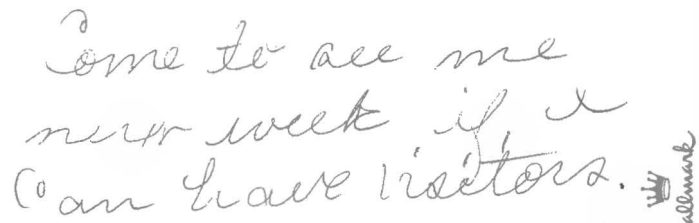 Come to see me
next week if I
can have visitors.
Hallmark